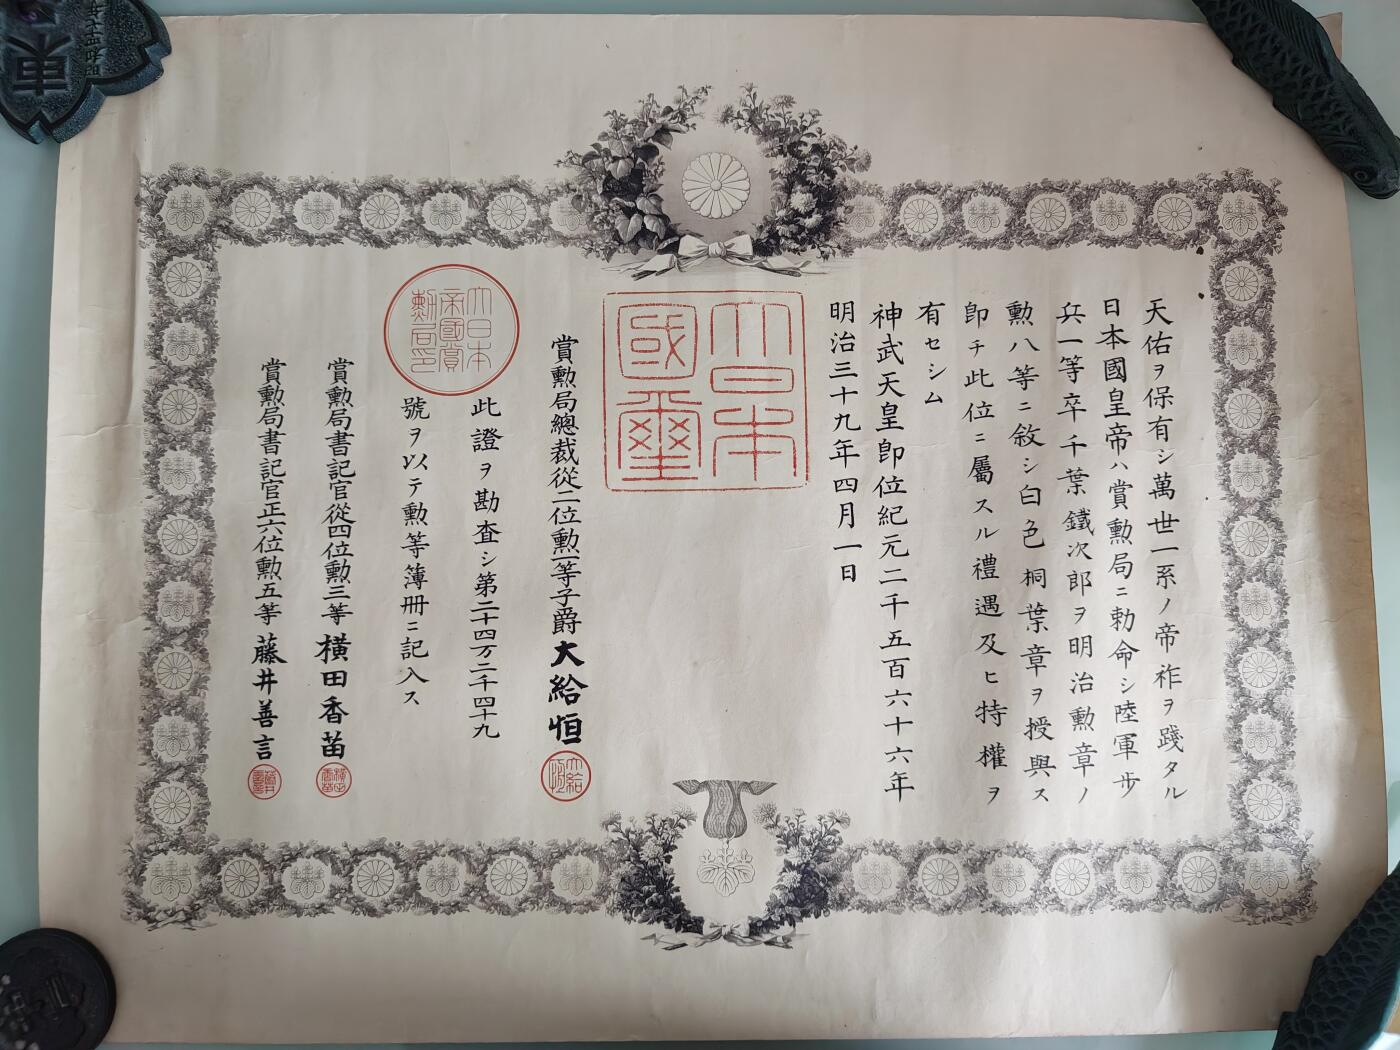 天佑ヲ保有シ萬世一系ノ帝祚ヲ踐タル
日本國皇帝ハ賞勲局ニ勅命シ陸軍歩
兵一等卒千葉鐵次郎ヲ明治勲章ノ
勲八等ニ敘シ白色桐葉章ヲ授與ス
卽チ此位ニ屬スル禮遇及ヒ特權ヲ
有セシム
神武天皇卽位紀元二千五百六十六年
明治三十九年四月一日
大日本國璽
賞勲局總裁從二位勲一等子爵大給恒
大給恒
此證ヲ勘査シ第二十四万二千四十九
號ヲ以テ勲等簿冊ニ記入ス
大日本帝國賞勲局印
賞勲局書記官從四位勲三等横田香苗
賞勲局書記官正六位勲五等藤井善言